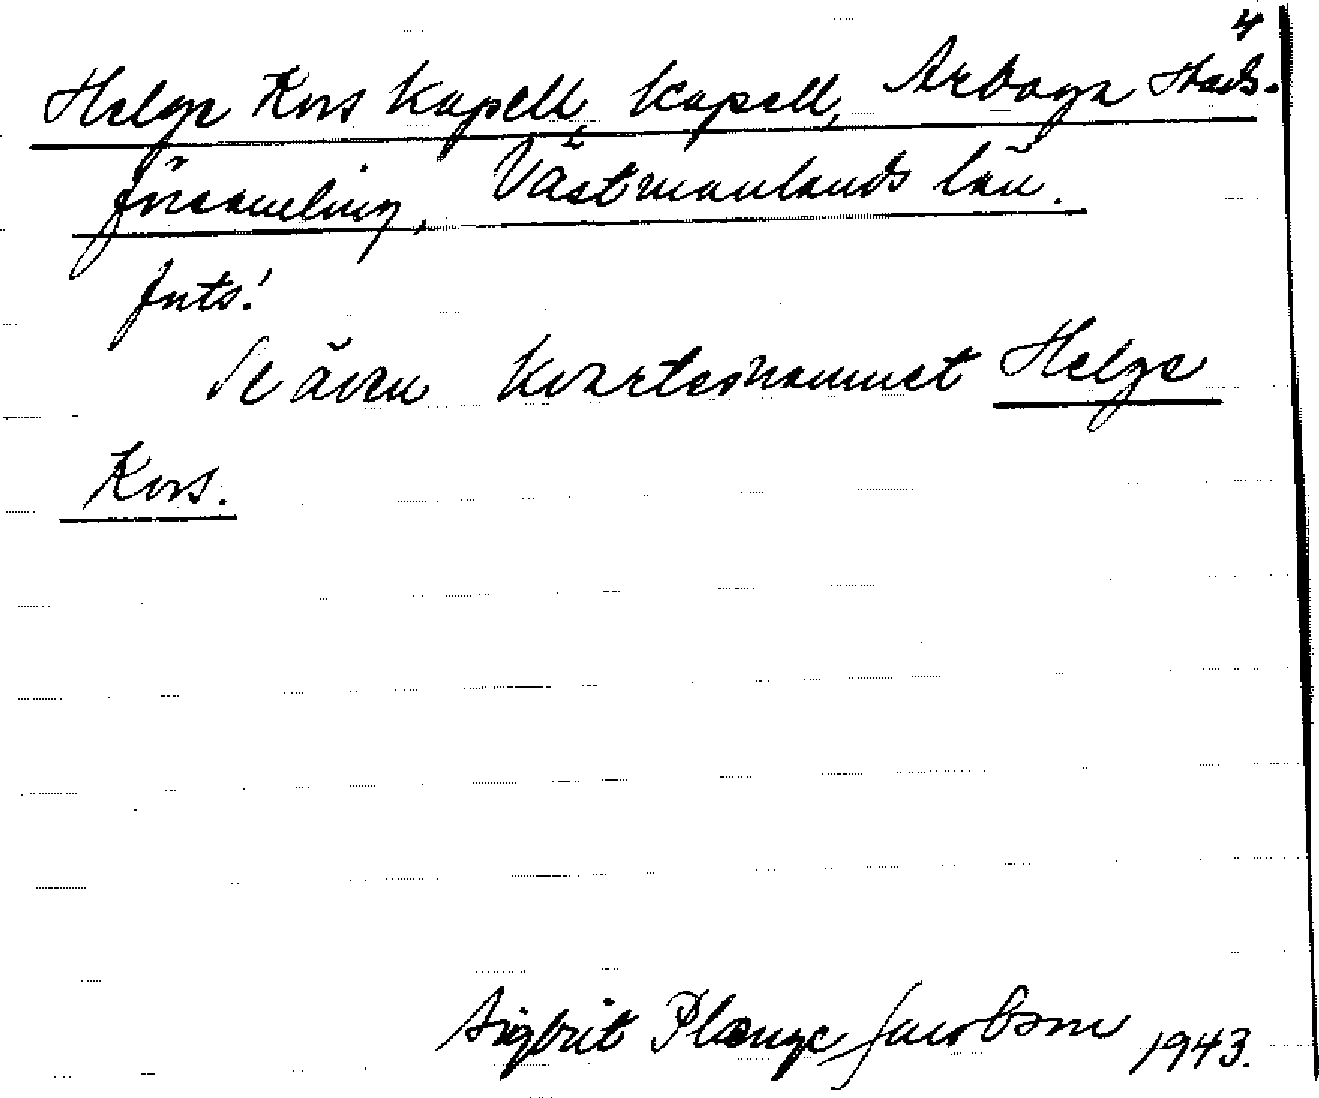 4
Helge Kors Kapell, Kapell, Arboga Stads-
församling, Västmanlands län.
Forts.!
Se även kvartersnamnet Helge
Kors.
Sigbrit Plænge Jacobson 1943.